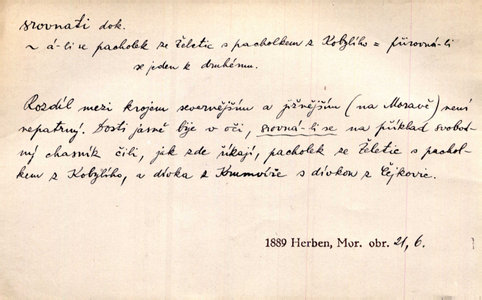 srovnati dok.
~ á-li se pacholek ze Želetic s pacholkem z Kobylího = přirovná-li
se jeden k druhému.
Rozdíl mezi krojem severnějším a jižnějším (na Moravě) není
nepatrný. Dosti jasně bije v oči, srovná-li se na příklad svobod-
ný chasník čili, jak zde říkají, pacholek ze Želetic s pachol-
kem z Kobylího, a dívka z Krumvíře s dívkou z Čejkovic.
1889 Herben, Mor. obr. 21, 6.